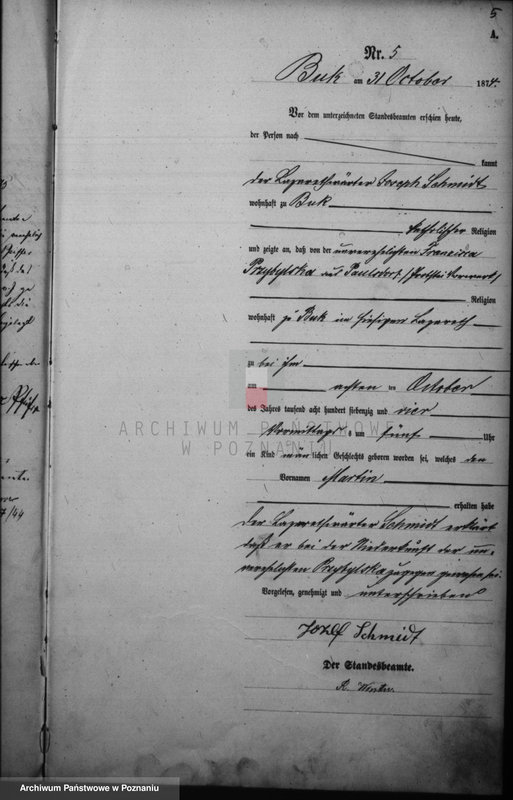 5
A.
Nr. 5
Buk am 31 October 1874.
Vor dem unterzeichneten Standesbeamten erschien heute,
der Person nach
kannt
der Lazarethwärter Joseph Schmidt
wohnhaft zu Buk
katholischer Religion
und zeigte an, daß von der unverehelichten Francisca
Przybylska aus Paulsdorf /
Religion
wohnhaft zu Buk im hiesigen Lazareth
zu bei ihm
am achten ten October
des Jahres tausend acht hundert siebenzig und vier
Vormittags um fünf Uhr
ein Kind männlichen Geschlechts geboren worden sei, welches den
Vornamen Martin
erhalten habe
der Lazarethwärter Schmidt erklärt
daß er bei der Niederkunft der un-
verehelichten Przybylska zugegen gewesen sei.
Vorgelesen, genehmigt und unterschrieben
Jozef Schmidt
Der Standesbeamte.
ARCHIWUM PAŃSTWOWE
W POZNANIU
Archiwum Państwowe w Poznaniu